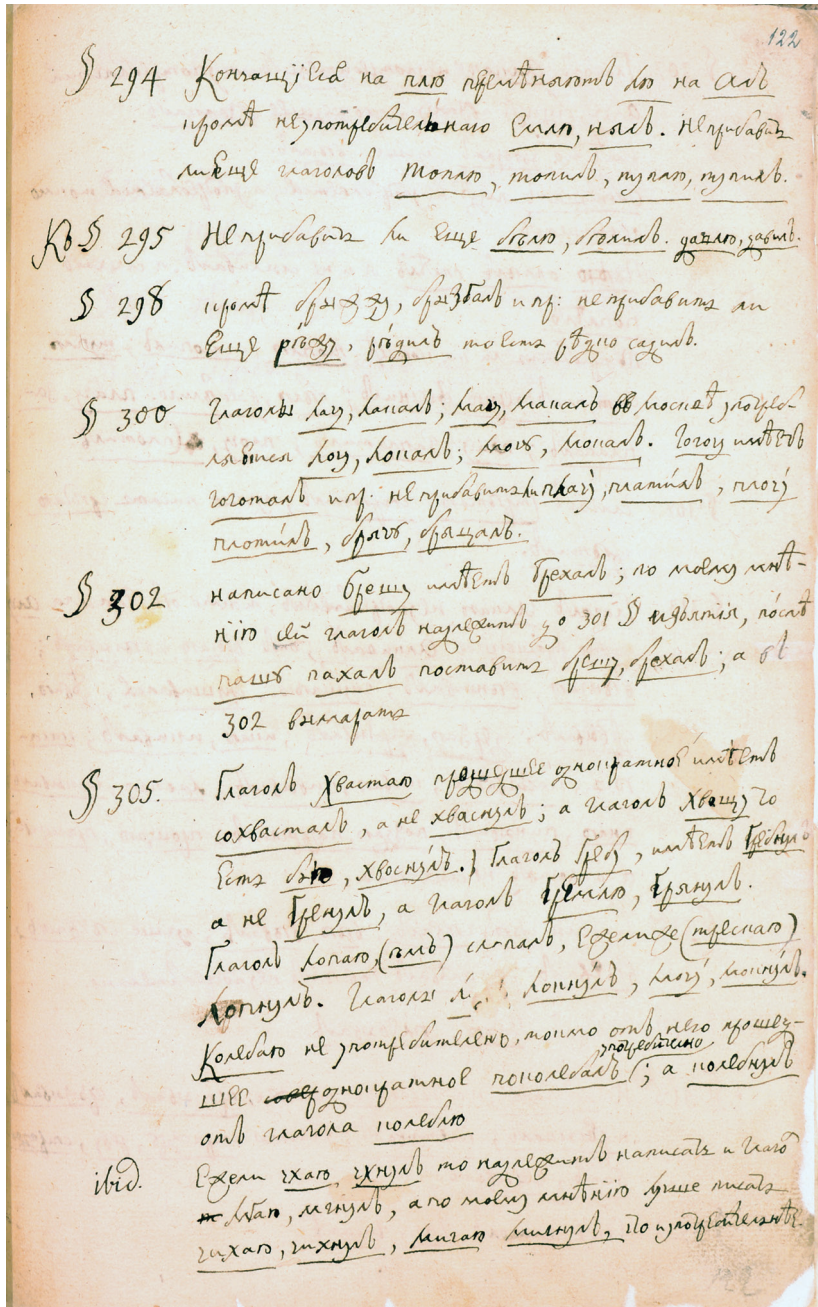 122
§ 294 Кончащїеся на плю перемѣняютъ лю на алъ
кромѣ неупотребительнаго Емлю, нялъ. Неприбавить
ли Еще глаголовъ топлю, топилъ, туплю, тупилъ.
Къ § 295 Не прибавить ли Еще бѣлю, бѣлилъ. давлю, давилъ.
§ 298 кромѣ брызжу, брызгалъ и пр: не прибавить ли
Еще рѣжу, рѣдилъ то Есть рѣдко садилъ.
§ 300 Глаголы лачу, лакалъ; мачу, макалъ въ Москвѣ употреб-
ляются лочу, локалъ; мочу, мокалъ. Гогочу имѣетъ
гоготалъ и пр. не прибавить ли плачу̀, плати́лъ, плочу̀
плоти́лъ, брячу, брящалъ.
§ 302 написано брешу имѣетъ брехалъ; по моему мнѣ-
нїю сей глаголъ надлежитъ до 301 § изъятїя, послѣ
пашу пахалъ поставить брешу, брехалъ; а въ
302 вымарать
§ 305. Глаголъ Хвастаю прошедшее однократное имѣетъ
сохвасталъ, а не хваснулъ; а глаголъ Хвощу что
Есть бью, хвоснулъ. Глаголъ Гребу, имѣетъ Гребнулъ
а не Гренулъ, а глаголъ Гремлю, Грянулъ.
Глаголъ лопаю, (ѣмъ) слопалъ, Ежелиже (трескаю)
Лопнулъ. Глаголы локну́лъ, мочу́, мокну́лъ.
Колебаю не употребителенъ, токмо отъ него прошед-
употребительно
шее однократное поколебалъ; а колебнулъ
отъ глагола колеблю
ibid. Ежели чхаю, чхнулъ то надлежитъ написать и глаго
мгаю, мгнулъ, а по моему мнѣнїю лучше писать
чихаю, чихнулъ, мигаю мигнулъ, что и употребительнѣе.